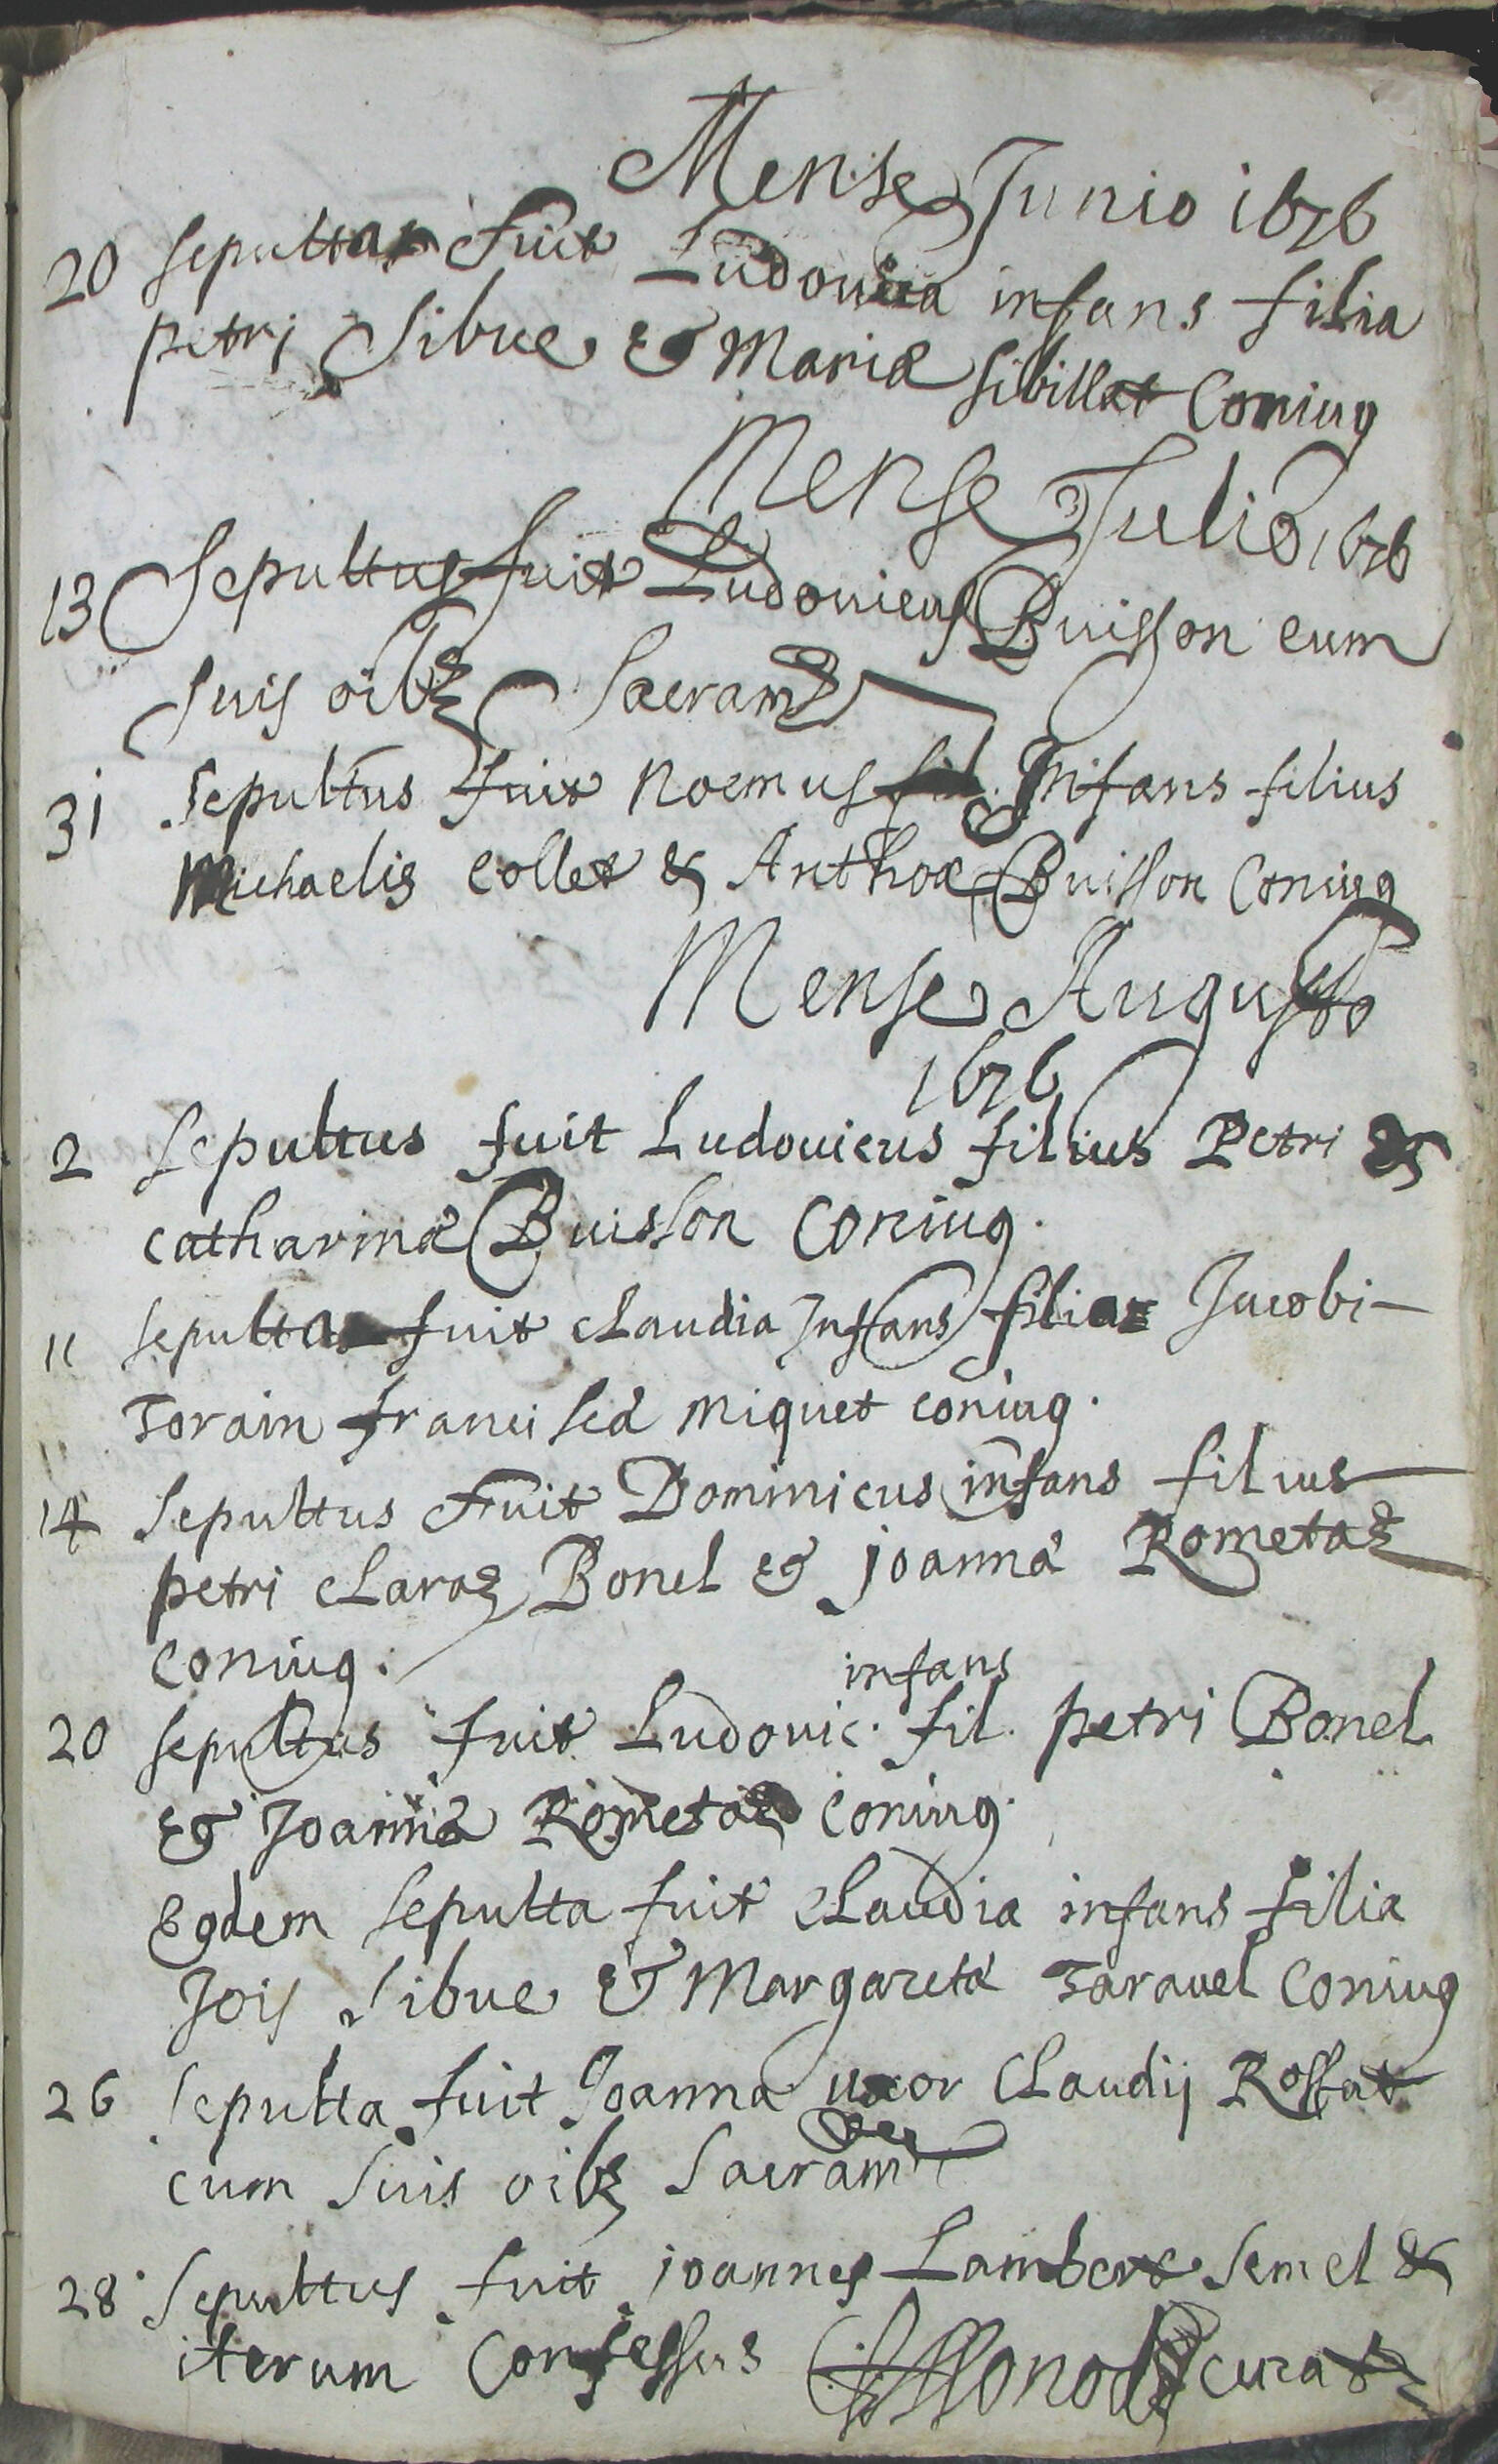 Mense Junio 1676
20 sepulta fuit Ludouica infans filia
petri Sibue & Mariæ Sibillat Coniug
Mense Julio 1676
13 Sepultus fuit Ludouicus Buisson cum
suis oibz Sacram
31 Sepultus fuit Noemus infans filius
Michaelis Collet & Anthoæ Buisson Coniug
Mense Augusto
1676
2 Sepultus fuit Ludouicus filius Petri &
catharinæ Buisson Coniug.
11 sepulta fuit Claudia Infans filia Jacobi
Torain franciscæ Miquet coniug.
14 Sepultus Fuit Dominicus infans filius
petri Claraz Bonel & joannæ Rometaz
Coniug.
infans
20 sepultus fuit Ludouic. fil. petri Bonel
& Joannæ Rometaz Coniug.
Eodem Sepulta fuit Claudia infans filia
Jois Sibue & Margaretæ Tarauel Coniug
26 Sepulta fuit Joanna uxor Claudij Rossat
cum Suis oibz Sacram
28 Sepultus fuit joannes Lambert Semel &
iterum Confessus curat